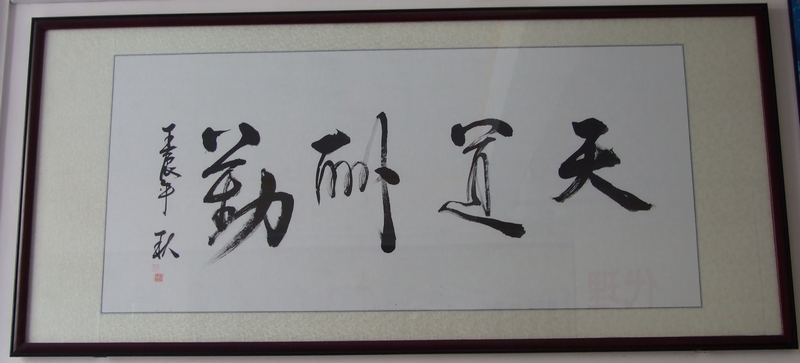 天道酬勤
壬辰年秋